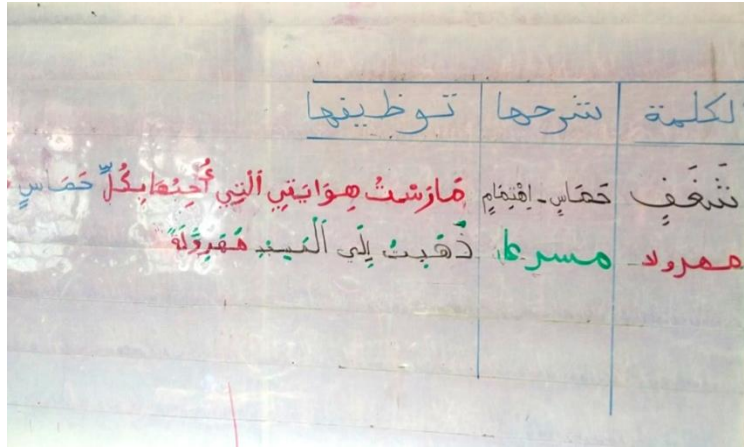 لكلمة شرحها توظيفها
شَغَفٍ حَمَاسٍ - اِهْتِمَامٍ مَارَسْتُ هِوَايَتِي اَلَّتِي أُحِبُّهَا بِكُلِّ حَمَاسٍ.
مهرولا مسرعا ذَهَبتُ إِلَى اَلْبَيتِ مُهَروِلَةً